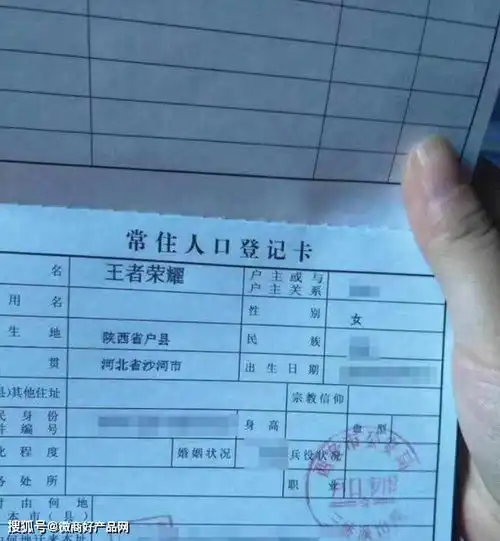 常住人口登记卡
名 王者荣耀 户主或与户主关系
用名 性别 女
生地 陕西省户县 民族
贯 河北省沙河市 出生日期
县)其他住址 宗教信仰
民身份
件编号 身高 血型
化程度 婚姻状况 兵役状况
务处所 职业
由何地
本市(县)
搜狐号@微商好产品网